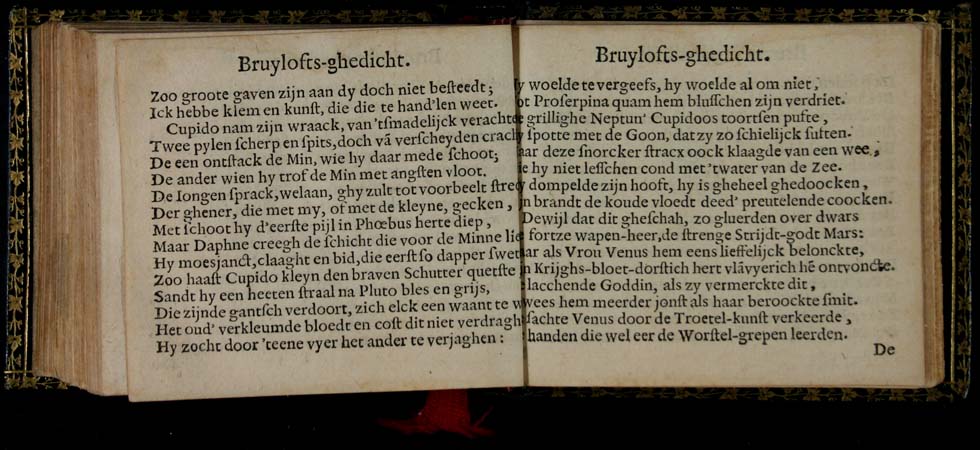 Bruylofts-ghedicht.
Zoo groote gaven zijn aan dy doch niet besteedt;
Ick hebbe klem en kunst, die die te hand'len weet.
Cupido nam zijn wraack, van 'tsmadelijck verachte
Twee pylen scherp en spits, doch vã verscheyden crach
De een ontstack de Min, wie hy daar mede schoot;
De ander wien hy trof de Min met angsten vloot.
De Iongen sprack, welaan, ghy zult tot voorbeelt stre
Der ghener, die met my, of met de kleyne, gecken,
Met schoot hy d'eerste pijl in Phœbus herte diep,
Maar Daphne creegh de schicht die voor de Minne lie
Hy moesjanct, claaght en bid, die eerst so dapper swet
Zoo haast Cupido kleyn den braven Schutter quetste
Sandt hy een heeten straal na Pluto bles en grijs,
Die zijnde gantsch verdoort, zich elck een waant te w
Het oud' verkleumde bloedt en cost dit niet verdragh
Hy zocht door 'teene vyer het ander te verjaghen:
Bruylofts-ghedicht.
y woelde te vergeefs, hy woelde al om niet,
ot Proserpina quam hem blusschen zijn verdriet.
grillighe Neptun' Cupidoos toortsen puste,
y spotte met de Goon, dat zy zo schielijck susten.
aar deze snorcker stracx oock klaagde van een wee,
ie hy niet lesschen cond met 'twater van de Zee.
y dompelde zijn hooft, hy is gheheel ghedoocken,
n brandt de koude vloedt deed' preutelende coocken.
Dewijl dat dit gheschah, zo gluerden over dwars
fortze wapen-heer, de strenge Strijdt-godt Mars:
ar als Vrou Venus hem eens lieffelijck belonckte,
n Krijghs-bloet-dorstich hert vlãvyerich hẽ ontvoncte.
lacchende Goddin, als zy vermerckte dit,
wees hem meerder jonst als haar beroockte smit.
sachte Venus door de Troetel-kunst verkeerde,
handen die wel eer de Worstel-grepen leerden.
De